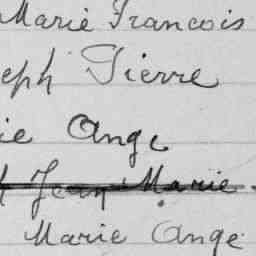 Marie Francois
eph Pierre
ie Ange
h Jean Marie
Marie Ange